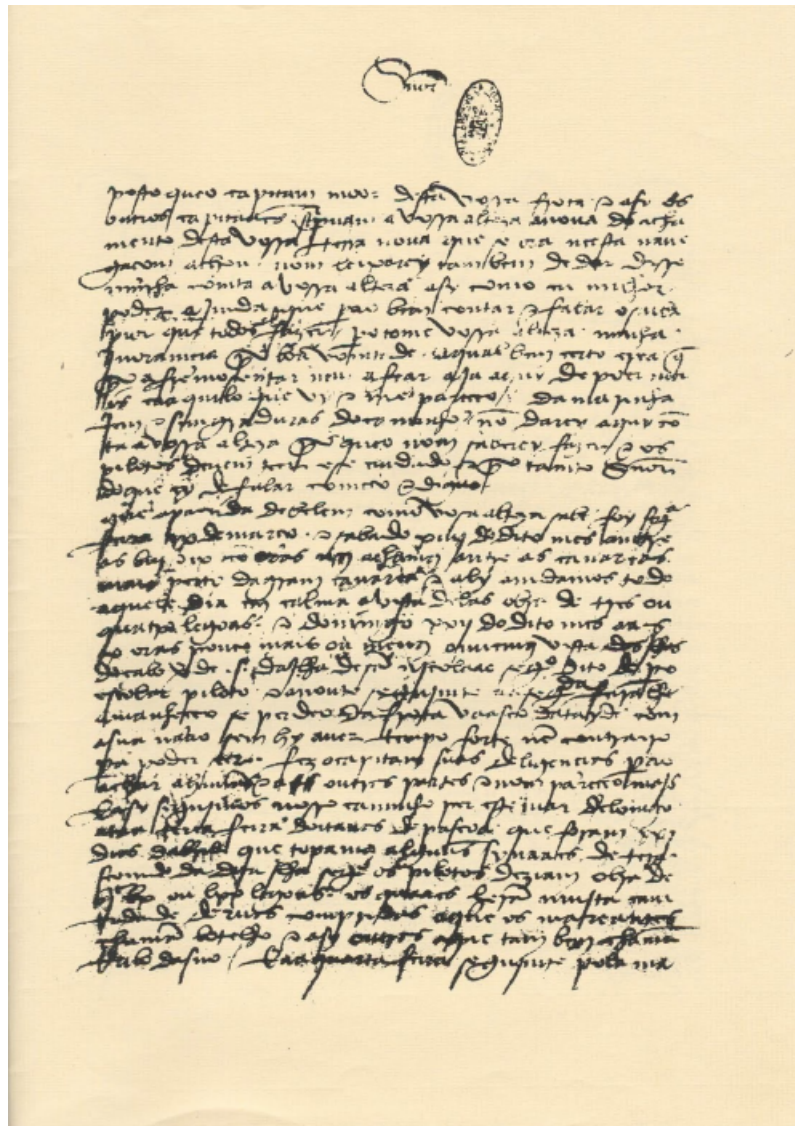 Snõr
posto queo capitam moor desta vossa frota e asy os
outros capitaães screpuam a vossa alteza a noua do acha
mento desta vossa terra noua que se ora neesta naue
gaçom achou. nom leixarey tambem de dar disso
minha comta a vossa alteza asy como eu milhor
poder ajmda que pera o bem contar e falar o saiba
pior que todos fazer. pero tome vossa alteza minha
jnoramçia por boa vomtade. aqual bem çerto crea q̃
por afremosentar nem afear aja aquy de poer mais
ca aquilo que vy e me pareçeo. da marinha
jem e simgraduras do caminho nõ darey aquy cõ
ta a vossa alteza por queo nom saberey fazer e os
pilotos deuem teer ese cuidado e por tanto Snõr
do que ey de falar começo e diguo
que apartida debelem como vosa alteza sabe foy segª
feira ix de março. e sabado xiiij do dito mes amtre
as biij e ix oras nos achamos antre as canareas
mais perto dagram canarea e aly amdamos todo
aquele dia em calma avista delas obra de tres ou
quatro legoas. e domingo xxij do dito mes aas
x oras pouco mais ou menos ouuemos vista das jlhas
do cabo verde. s. da jlha de sã njcolaao segº dito de pero
escolar piloto. e anoute segujmte aa segª feira lhe
amanheceo se perdeo da frota vaasco datayde com
asua naao sem hy auer tempo forte nẽ contrairo
pera poder seer. fez ocapitam suas deligençias perao
achar ahuũas e a outras partes e nom pareçeo majs
E asy segujmos nosso caminho per este mar delomgo
ataa terça feira doitauas de pascoa que foram xxj
dias dabril que topamos alguũs synaaes de tera
seemdo da dita jlha segº os pilotos deziam obra de
bjc lx ou lxx legoas. os quaaes herã mujta cam
tidade deruas compridas aque os mareantes
chamã botelho e asy outras aque tambem chamã
rrabo dasno / E aaquarta feira segujmte pola ma